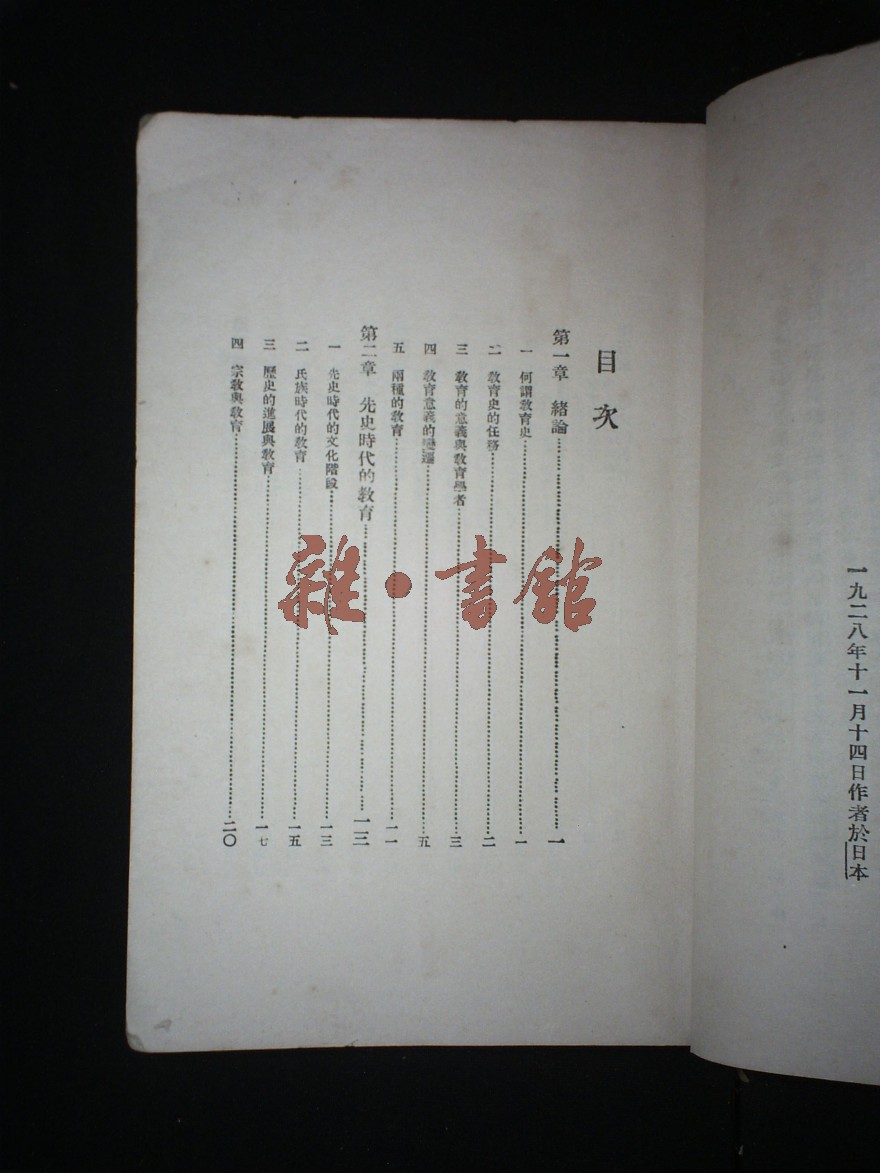 一九二八年十一月十四日作者於日本
目次
第一章 緒論…………一
一 何謂教育史…………一
二 教育史的任務…………二
三 教育的意義與教育學者…………三
四 教育意義的變遷…………五
五 兩種的教育…………一一
第二章 先史時代的教育…………一三
一 先史時代的文化階段…………一三
二 氏族時代的教育…………一五
三 歷史的進展與教育…………一七
四 宗教與教育…………二〇
雜·書館